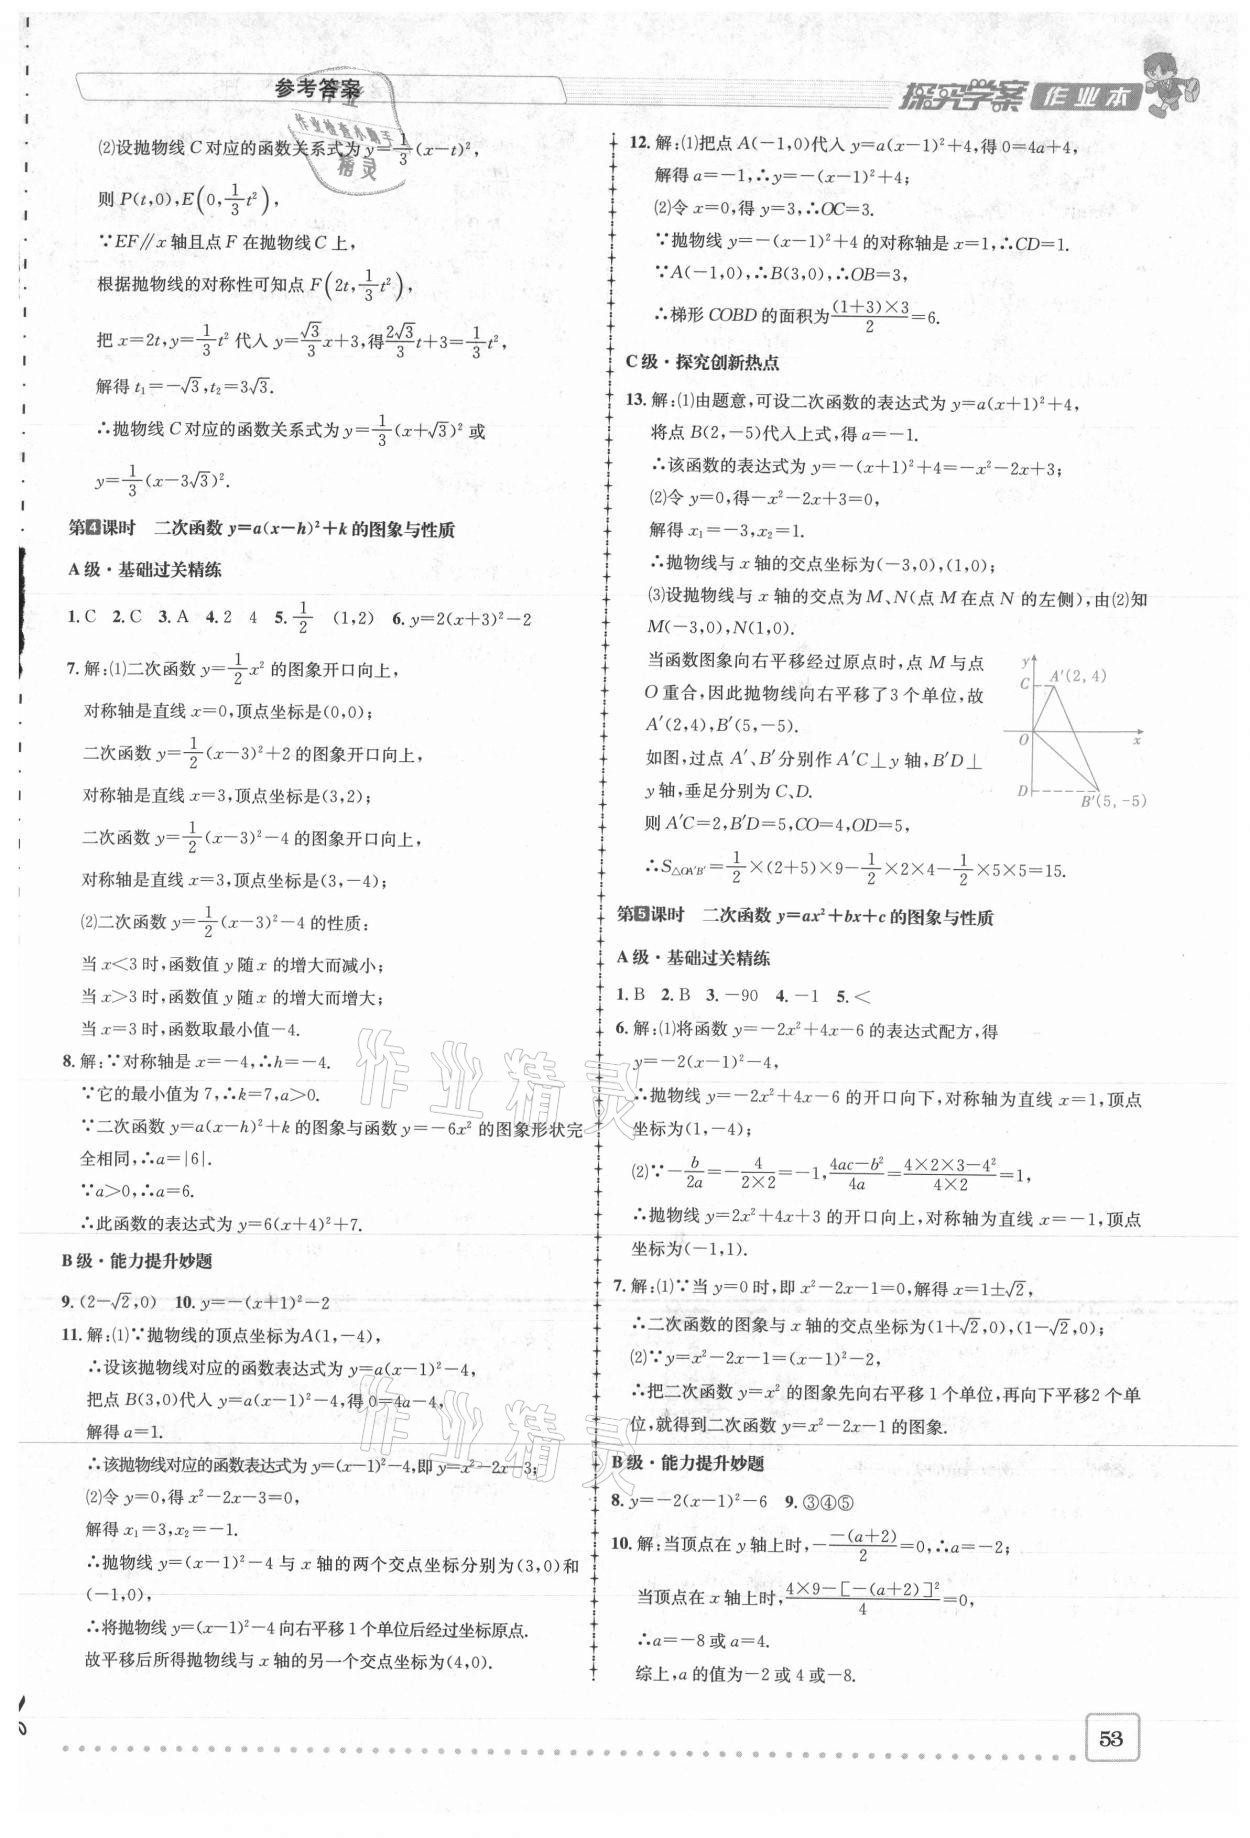 参考答案
探究学案 作业本
作业
作业检查小助手
精灵
(2)设抛物线C对应的函数关系式为y=1/3(x-t)²,
则P(t,0),E(0,1/3t²),
∵EF∥x轴且点F在抛物线C上,
根据抛物线的对称性可知点F(2t,1/3t²),
把x=2t,y=1/3t²代入y=√3/3x+3,得2√3/3t+3=1/3t²,
解得t₁=-√3,t₂=3√3.
∴抛物线C对应的函数关系式为y=1/3(x+√3)²或
y=1/3(x-3√3)².
第4课时 二次函数y=a(x-h)²+k的图象与性质
A级·基础过关精练
1.C 2.C 3.A 4.2 4 5.1/2 (1,2) 6.y=2(x+3)²-2
7.解:(1)二次函数y=1/2x²的图象开口向上,
对称轴是直线x=0,顶点坐标是(0,0);
二次函数y=1/2(x-3)²+2的图象开口向上,
对称轴是直线x=3,顶点坐标是(3,2);
二次函数y=1/2(x-3)²-4的图象开口向上,
对称轴是直线x=3,顶点坐标是(3,-4);
(2)二次函数y=1/2(x-3)²-4的性质:
当x<3时,函数值y随x的增大而减小;
当x>3时,函数值y随x的增大而增大;
当x=3时,函数取最小值-4.
8.解:∵对称轴是x=-4,∴h=-4.
∵它的最小值为7,∴k=7,a>0.
∵二次函数y=a(x-h)²+k的图象与函数y=-6x²的图象形状完
全相同,∴a=|6|.
∵a>0,∴a=6.
∴此函数的表达式为y=6(x+4)²+7.
B级·能力提升妙题
9.(2-√2,0) 10.y=-(x+1)²-2
11.解:(1)∵抛物线的顶点坐标为A(1,-4),
∴设该抛物线对应的函数表达式为y=a(x-1)²-4,
把点B(3,0)代入y=a(x-1)²-4,得0=4a-4,
解得a=1.
∴该抛物线对应的函数表达式为y=(x-1)²-4,即y=x²-2x-3;
(2)令y=0,得x²-2x-3=0,
解得x₁=3,x₂=-1.
∴抛物线y=(x-1)²-4与x轴的两个交点坐标分别为(3,0)和
(-1,0),
∴将抛物线y=(x-1)²-4向右平移1个单位后经过坐标原点.
故平移后所得抛物线与x轴的另一个交点坐标为(4,0).
12.解:(1)把点A(-1,0)代入y=a(x-1)²+4,得0=4a+4,
解得a=-1,∴y=-(x-1)²+4;
(2)令x=0,得y=3,∴OC=3.
∵抛物线y=-(x-1)²+4的对称轴是x=1,∴CD=1.
∵A(-1,0),∴B(3,0),∴OB=3,
∴梯形COBD的面积为(1+3)×3/2=6.
C级·探究创新热点
13.解:(1)由题意,可设二次函数的表达式为y=a(x+1)²+4,
将点B(2,-5)代入上式,得a=-1.
∴该函数的表达式为y=-(x+1)²+4=-x²-2x+3;
(2)令y=0,得-x²-2x+3=0,
解得x₁=-3,x₂=1.
∴抛物线与x轴的交点坐标为(-3,0),(1,0);
(3)设抛物线与x轴的交点为M、N(点M在点N的左侧),由(2)知
M(-3,0),N(1,0).
当函数图象向右平移经过原点时,点M与点
O重合,因此抛物线向右平移了3个单位,故
A′(2,4),B′(5,-5).
如图,过点A′、B′分别作A′C⊥y轴,B′D⊥
y轴,垂足分别为C、D.
则A′C=2,B′D=5,CO=4,OD=5,
∴S△OA′B′=1/2×(2+5)×9-1/2×2×4-1/2×5×5=15.
y
C
A′(2,4)
O
x
D
B′(5,-5)
第5课时 二次函数y=ax²+bx+c的图象与性质
A级·基础过关精练
1.B 2.B 3.-90 4.-1 5.<
6.解:(1)将函数y=-2x²+4x-6的表达式配方,得
y=-2(x-1)²-4,
∴抛物线y=-2x²+4x-6的开口向下,对称轴为直线x=1,顶点
坐标为(1,-4);
(2)∵-b/2a=-4/2×2=-1,4ac-b²/4a=4×2×3-4²/4×2=1,
∴抛物线y=2x²+4x+3的开口向上,对称轴为直线x=-1,顶点
坐标为(-1,1).
7.解:(1)∵当y=0时,即x²-2x-1=0,解得x=1±√2,
∴二次函数的图象与x轴的交点坐标为(1+√2,0),(1-√2,0);
(2)∵y=x²-2x-1=(x-1)²-2,
∴把二次函数y=x²的图象先向右平移1个单位,再向下平移2个单
位,就得到二次函数y=x²-2x-1的图象.
B级·能力提升妙题
8.y=-2(x-1)²-6 9.③④⑤
10.解:当顶点在y轴上时,--(a+2)/2=0,∴a=-2;
当顶点在x轴上时,4×9-[-(a+2)]²/4=0,
∴a=-8或a=4.
综上,a的值为-2或4或-8.
作业精灵
作业精灵
53